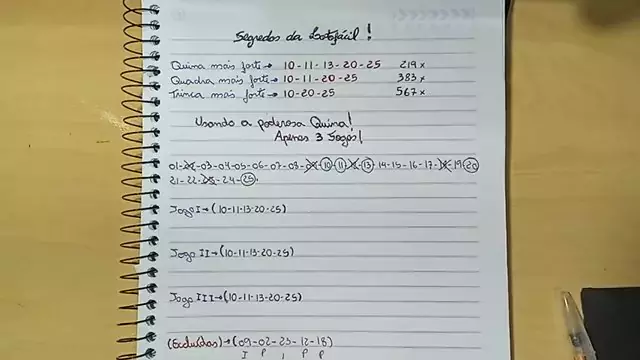 Segredos da Lotofácil!
Quina mais forte → 10-11-13-20-25 219x
Quadra mais forte → 10-11-20-25 383x
Trinca mais forte → 10-20-25 567x
Usando a poderosa Quina!
Apenas 3 Jogos!
01-02-03-04-05-06-07-08-09-10-11-12-13-14-15-16-17-18-19-20
21-22-23-24-25.
Jogo I → (10-11-13-20-25)
Jogo II → (10-11-13-20-25)
Jogo III → (10-11-13-20-25)
(Excluídos) → (09-02-23-12-18)
I P I P P